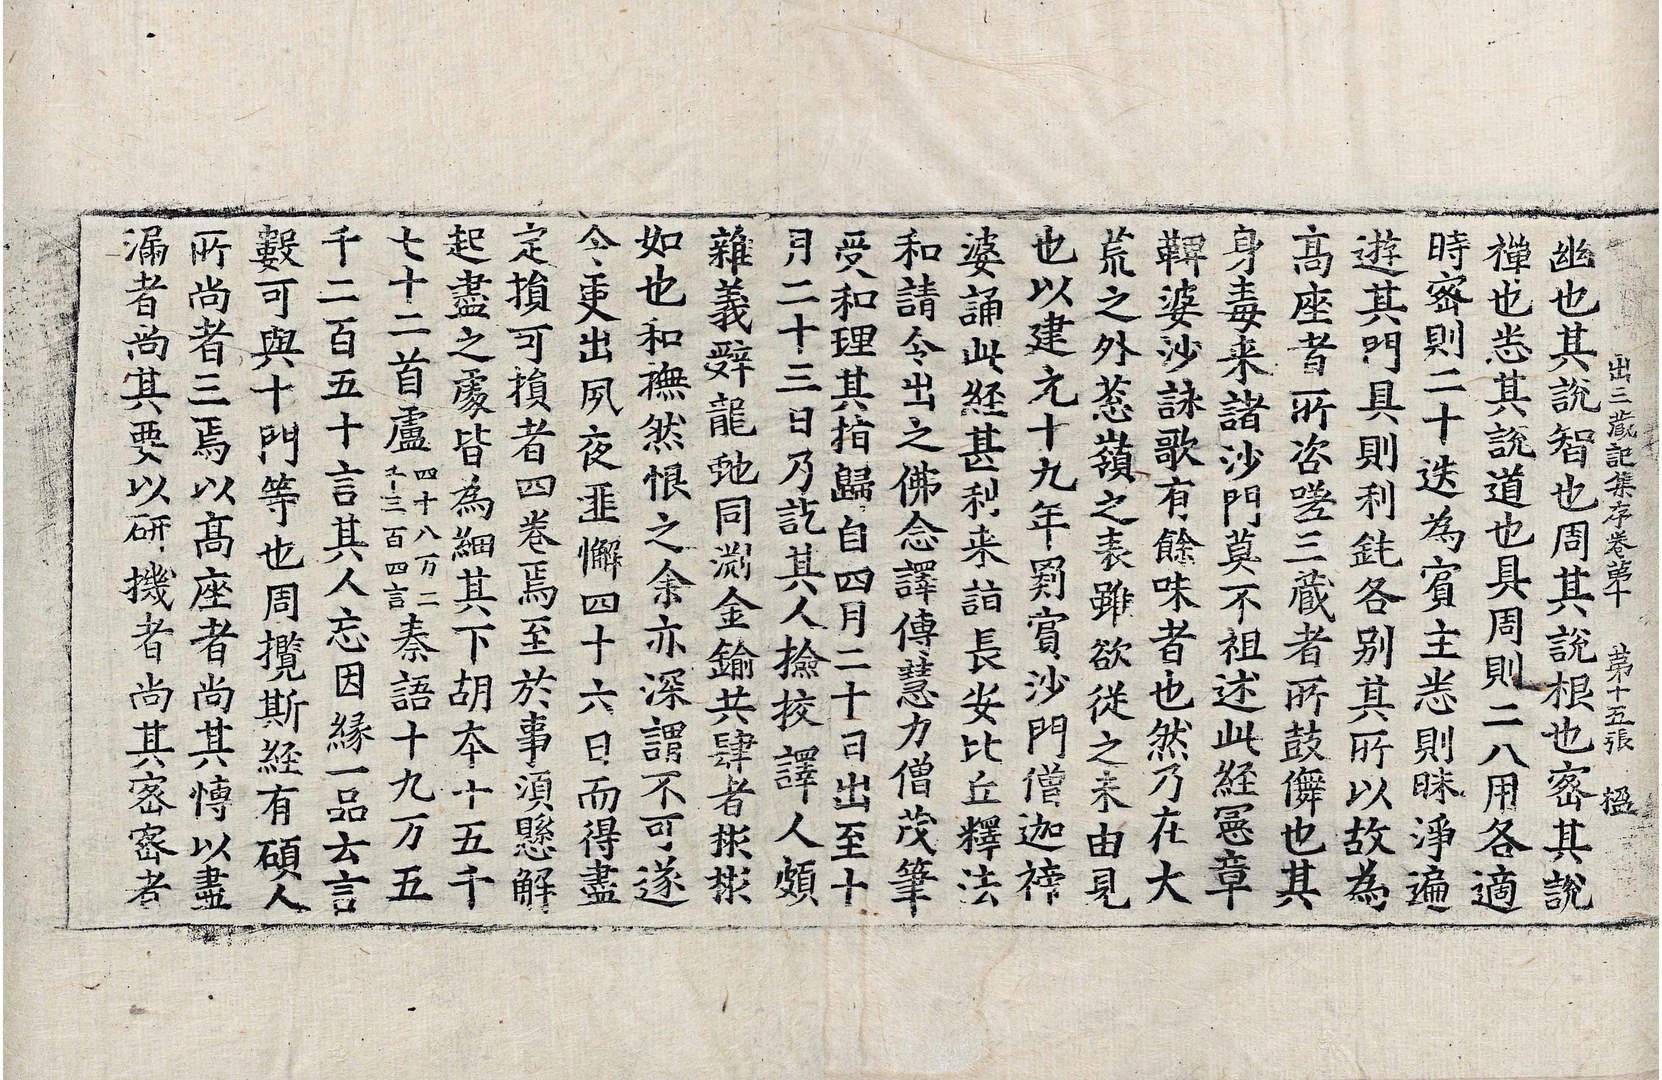 出三藏記集序卷第十 第十五張 楹
幽也其說智也周其說根也密其說
禪也悉其說道也具周則二八用各適
時密則二十迭為賓主悉則昧淨遍
遊其門具則利鈍各別其所以故為
高座者所咨嗟三藏者所鼓儛也其
身毒来諸沙門莫不祖述此經憲章
鞞婆沙詠歌有餘味者也然乃在大
荒之外葱嶺之表雖欲從之末由見
也以建元十九年罽賓沙門僧迦禘
婆誦此經甚利来詣長安比丘釋法
和請令出之佛念譯傳慧力僧茂筆
受和理其指歸自四月二十日出至十
月二十三日乃訖其人撿挍譯人頗
雜義辭龍虵同渊金鍮共肆者彬彬
如也和撫然恨之余亦深謂不可遂
令更出夙夜匪懈四十六日而得盡
定損可損者四卷焉至於事須懸解
起盡之處皆為細其下胡本十五千
七十二首盧四十八万二千三百四言秦語十九万五
千二百五十言其人忘因緣一品云言
數可與十門等也周攬斯經有碩人
所尚者三焉以高座者尚其慱以盡
漏者尚其要以研機者尚其密密者